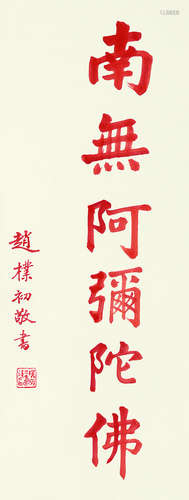 南無阿彌陀佛
趙樸初敬書